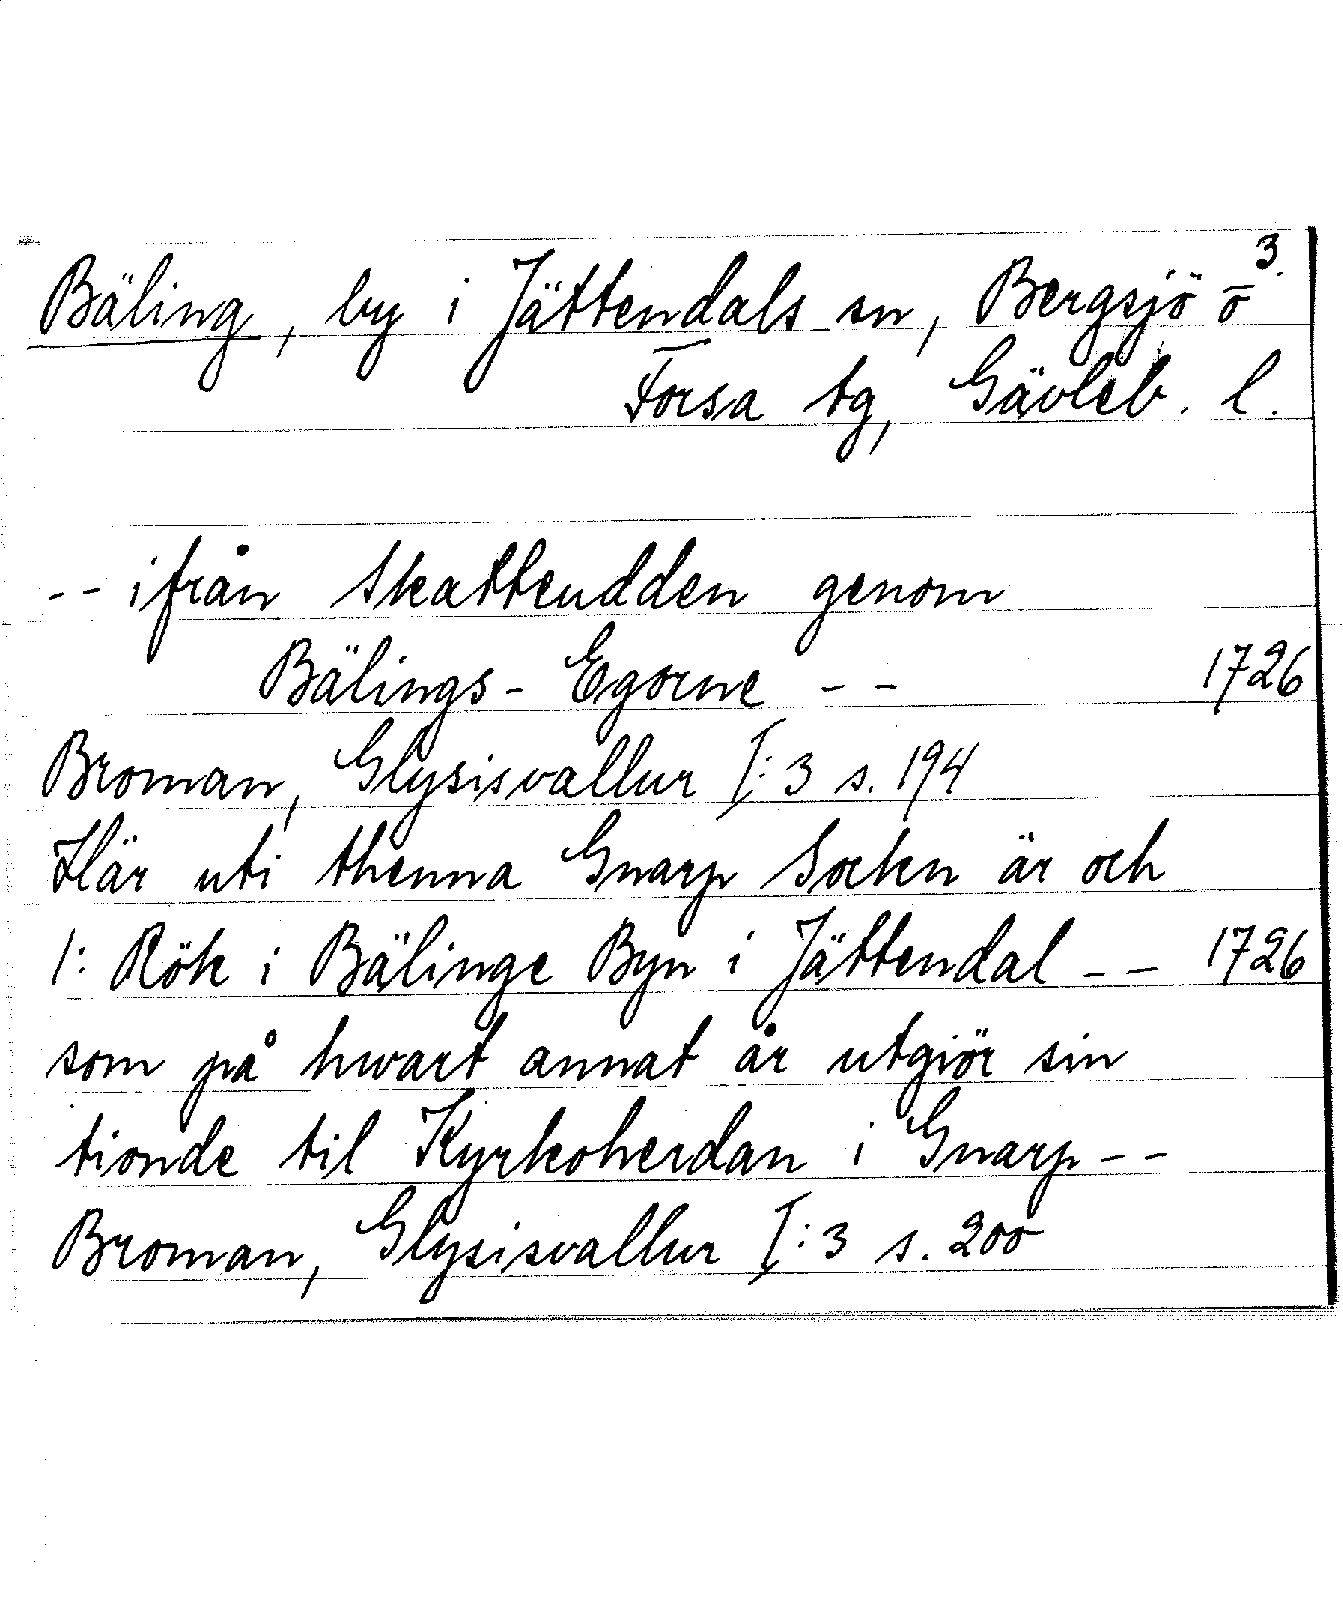 3.
Bäling, by i Jättendals sn, Bergsjö o
Forsa tg, Gävleb. l.
-- ifrån Skattendden genom
Bälings-Egorne -- 1726
Broman, Glysisvallur I:3 s. 194
Här uti thenna Gnarp Sockn är och
1: Rök i Bälinge Byn i Jättendal -- 1726
som på hwart annat år utgiör sin
tionde til Kyrkoherdan i Gnarp --
Broman, Glysisvallur I:3 s. 200